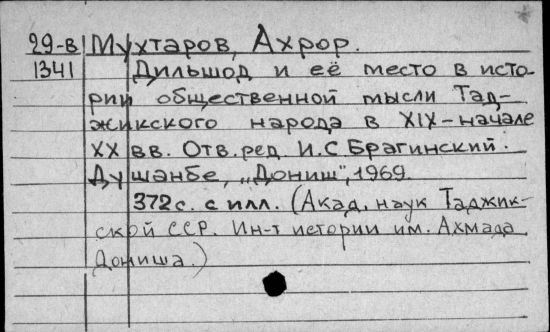 29-в Мухтаров, Ахрор.
1341 Дильшод и её место в исто-
рии общественной мысли Тад-
жикского народа в XIX-начале
XX вв. Отв. ред. И.С. Брагинский.
Душанбе, „Дониш", 1969.
372 с. с илл. (Акад. наук Таджик-
ской ССР. Ин-т истории им. Ахмада
Дониша.)